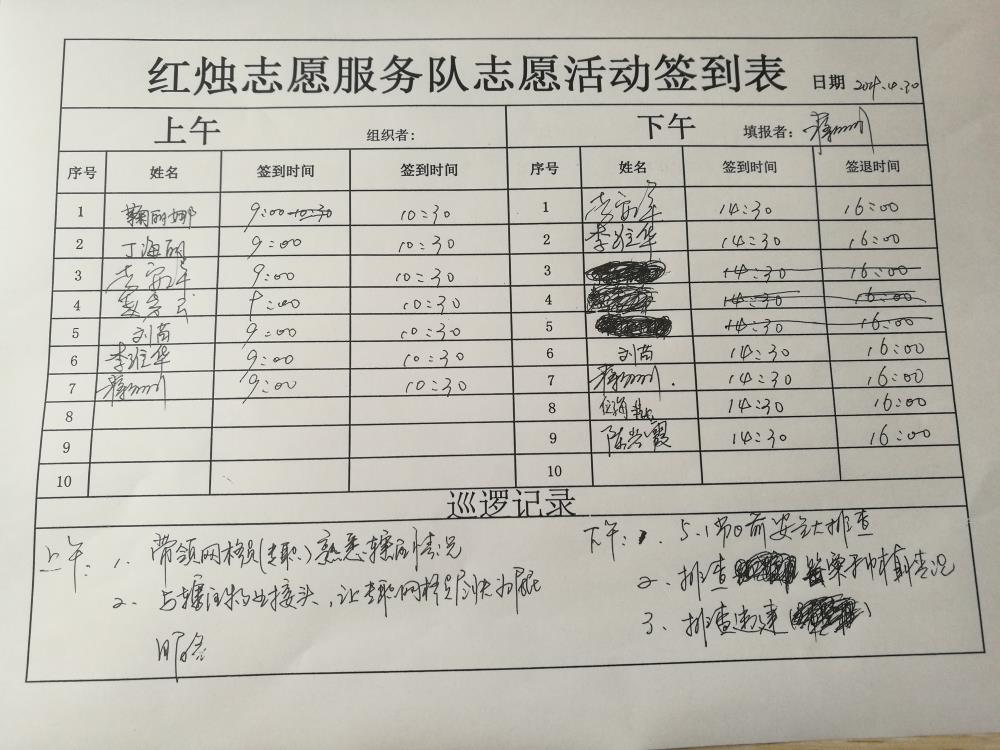 红烛志愿服务队志愿活动签到表 日期
上午 组织者: 下午 填报者:
序号 姓名 签到时间 签到时间 序号 姓名 签到时间 签退时间
1 鞠丽娜 9:00 10:30 1 14:30 16:00
2 丁海丽 9:00 10:30 2 李维华 14:30 16:00
3 9:00 10:30 3 14:30 16:00
4 9:00 10:30 4 14:30 16:00
5 刘芮 9:00 10:30 5 14:30 16:00
6 李维华 9:00 10:30 6 刘芮 14:30 16:00
7 9:00 10:30 7 14:30 16:00
8 8 14:30 16:00
9 9 陈兴霞 14:30 16:00
10 10
巡逻记录
上午: 1. 带领网格员(专职)熟悉辖区情况
2. 与辖区物业接头,让专职网格员尽快为居
民服务
下午: 1. 5.1节日前安全大排查
2. 排查 罂粟种植情况
3. 排查违建